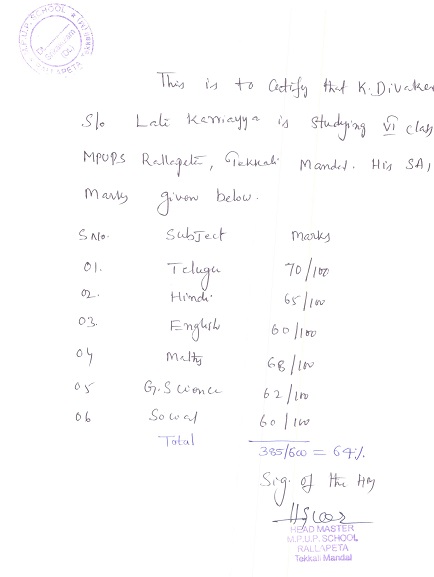 M.P.U.P. SCHOOL
RALLAPETA
This is to Certify that K. Divaker
S/o Late Kamayya is studying VI class
MPUPS Rallapeta, Tekkali Mandal. His SA1
Marks given below.
S No. Subject Marks
01. Telugu 70/100
02. Hindi 65/100
03. English 60/100
04 Maths 68/100
05 G. Science 62/100
06 Social 60/100
Total 385/600 = 64%
Sig. of the HM
HEAD MASTER
M.P.U.P. SCHOOL
RALLAPETA
Tekkali Mandal